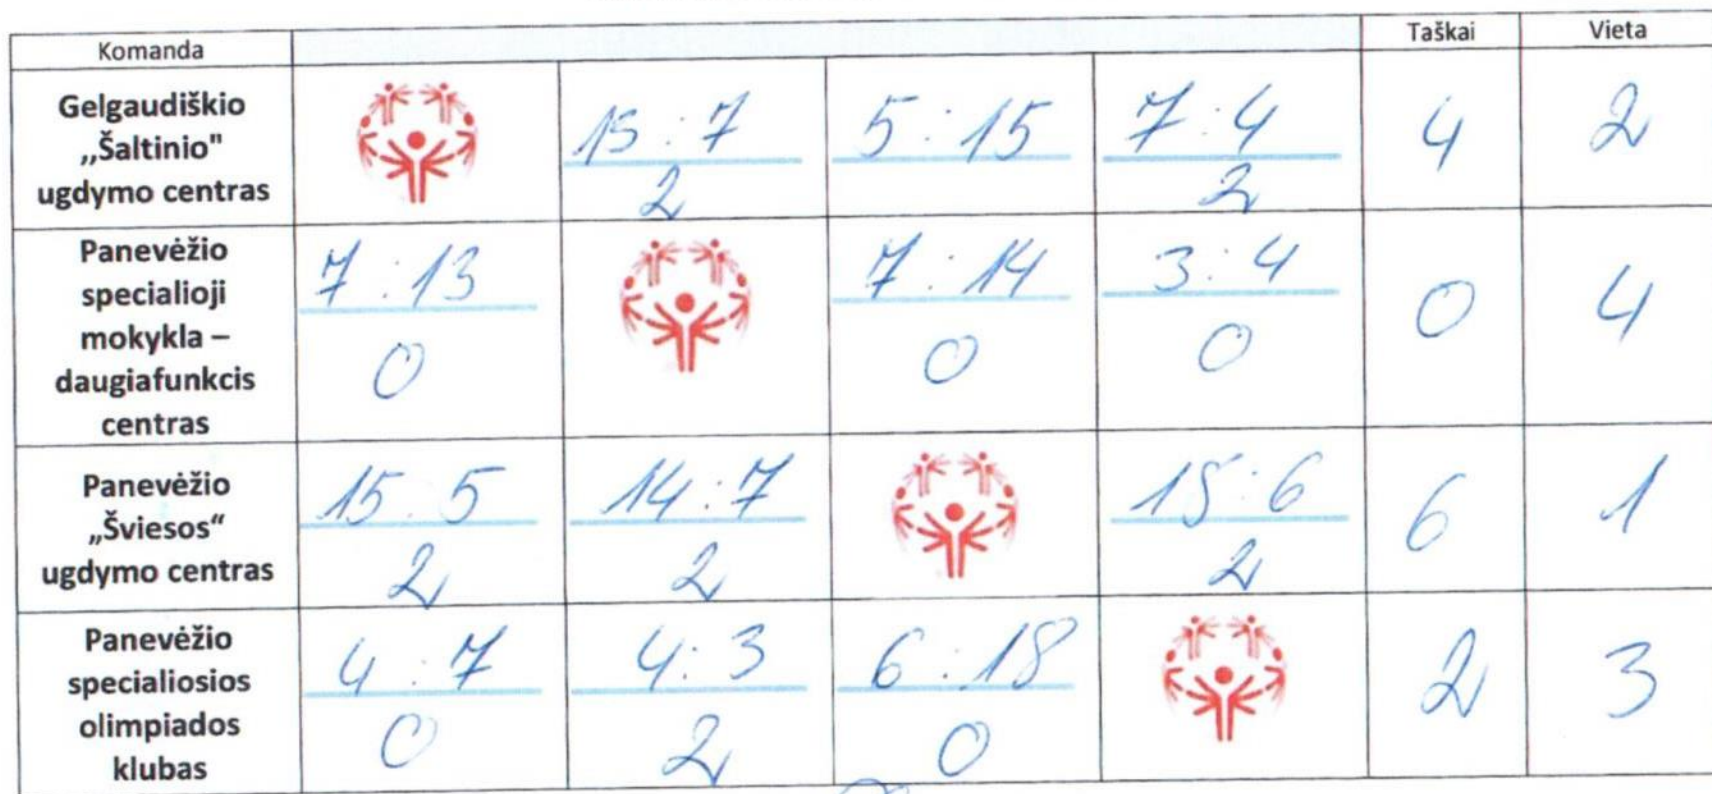 Komanda Taškai Vieta
Gelgaudiškio
,,Šaltinio"
ugdymo centras
15 : 7 5 : 15 7 : 4 4 2
2 2
Panevėžio
specialioji
mokykla –
daugiafunkcis
centras
7 : 13 7 : 14 3 : 4 0 4
0 0 0
Panevėžio
„Šviesos“
ugdymo centras
15 : 5 14 : 7 6 1
2 2 2
Panevėžio
specialiosios
olimpiados
klubas
4 : 7 4 : 3 6 : 18 2 3
0 2 0